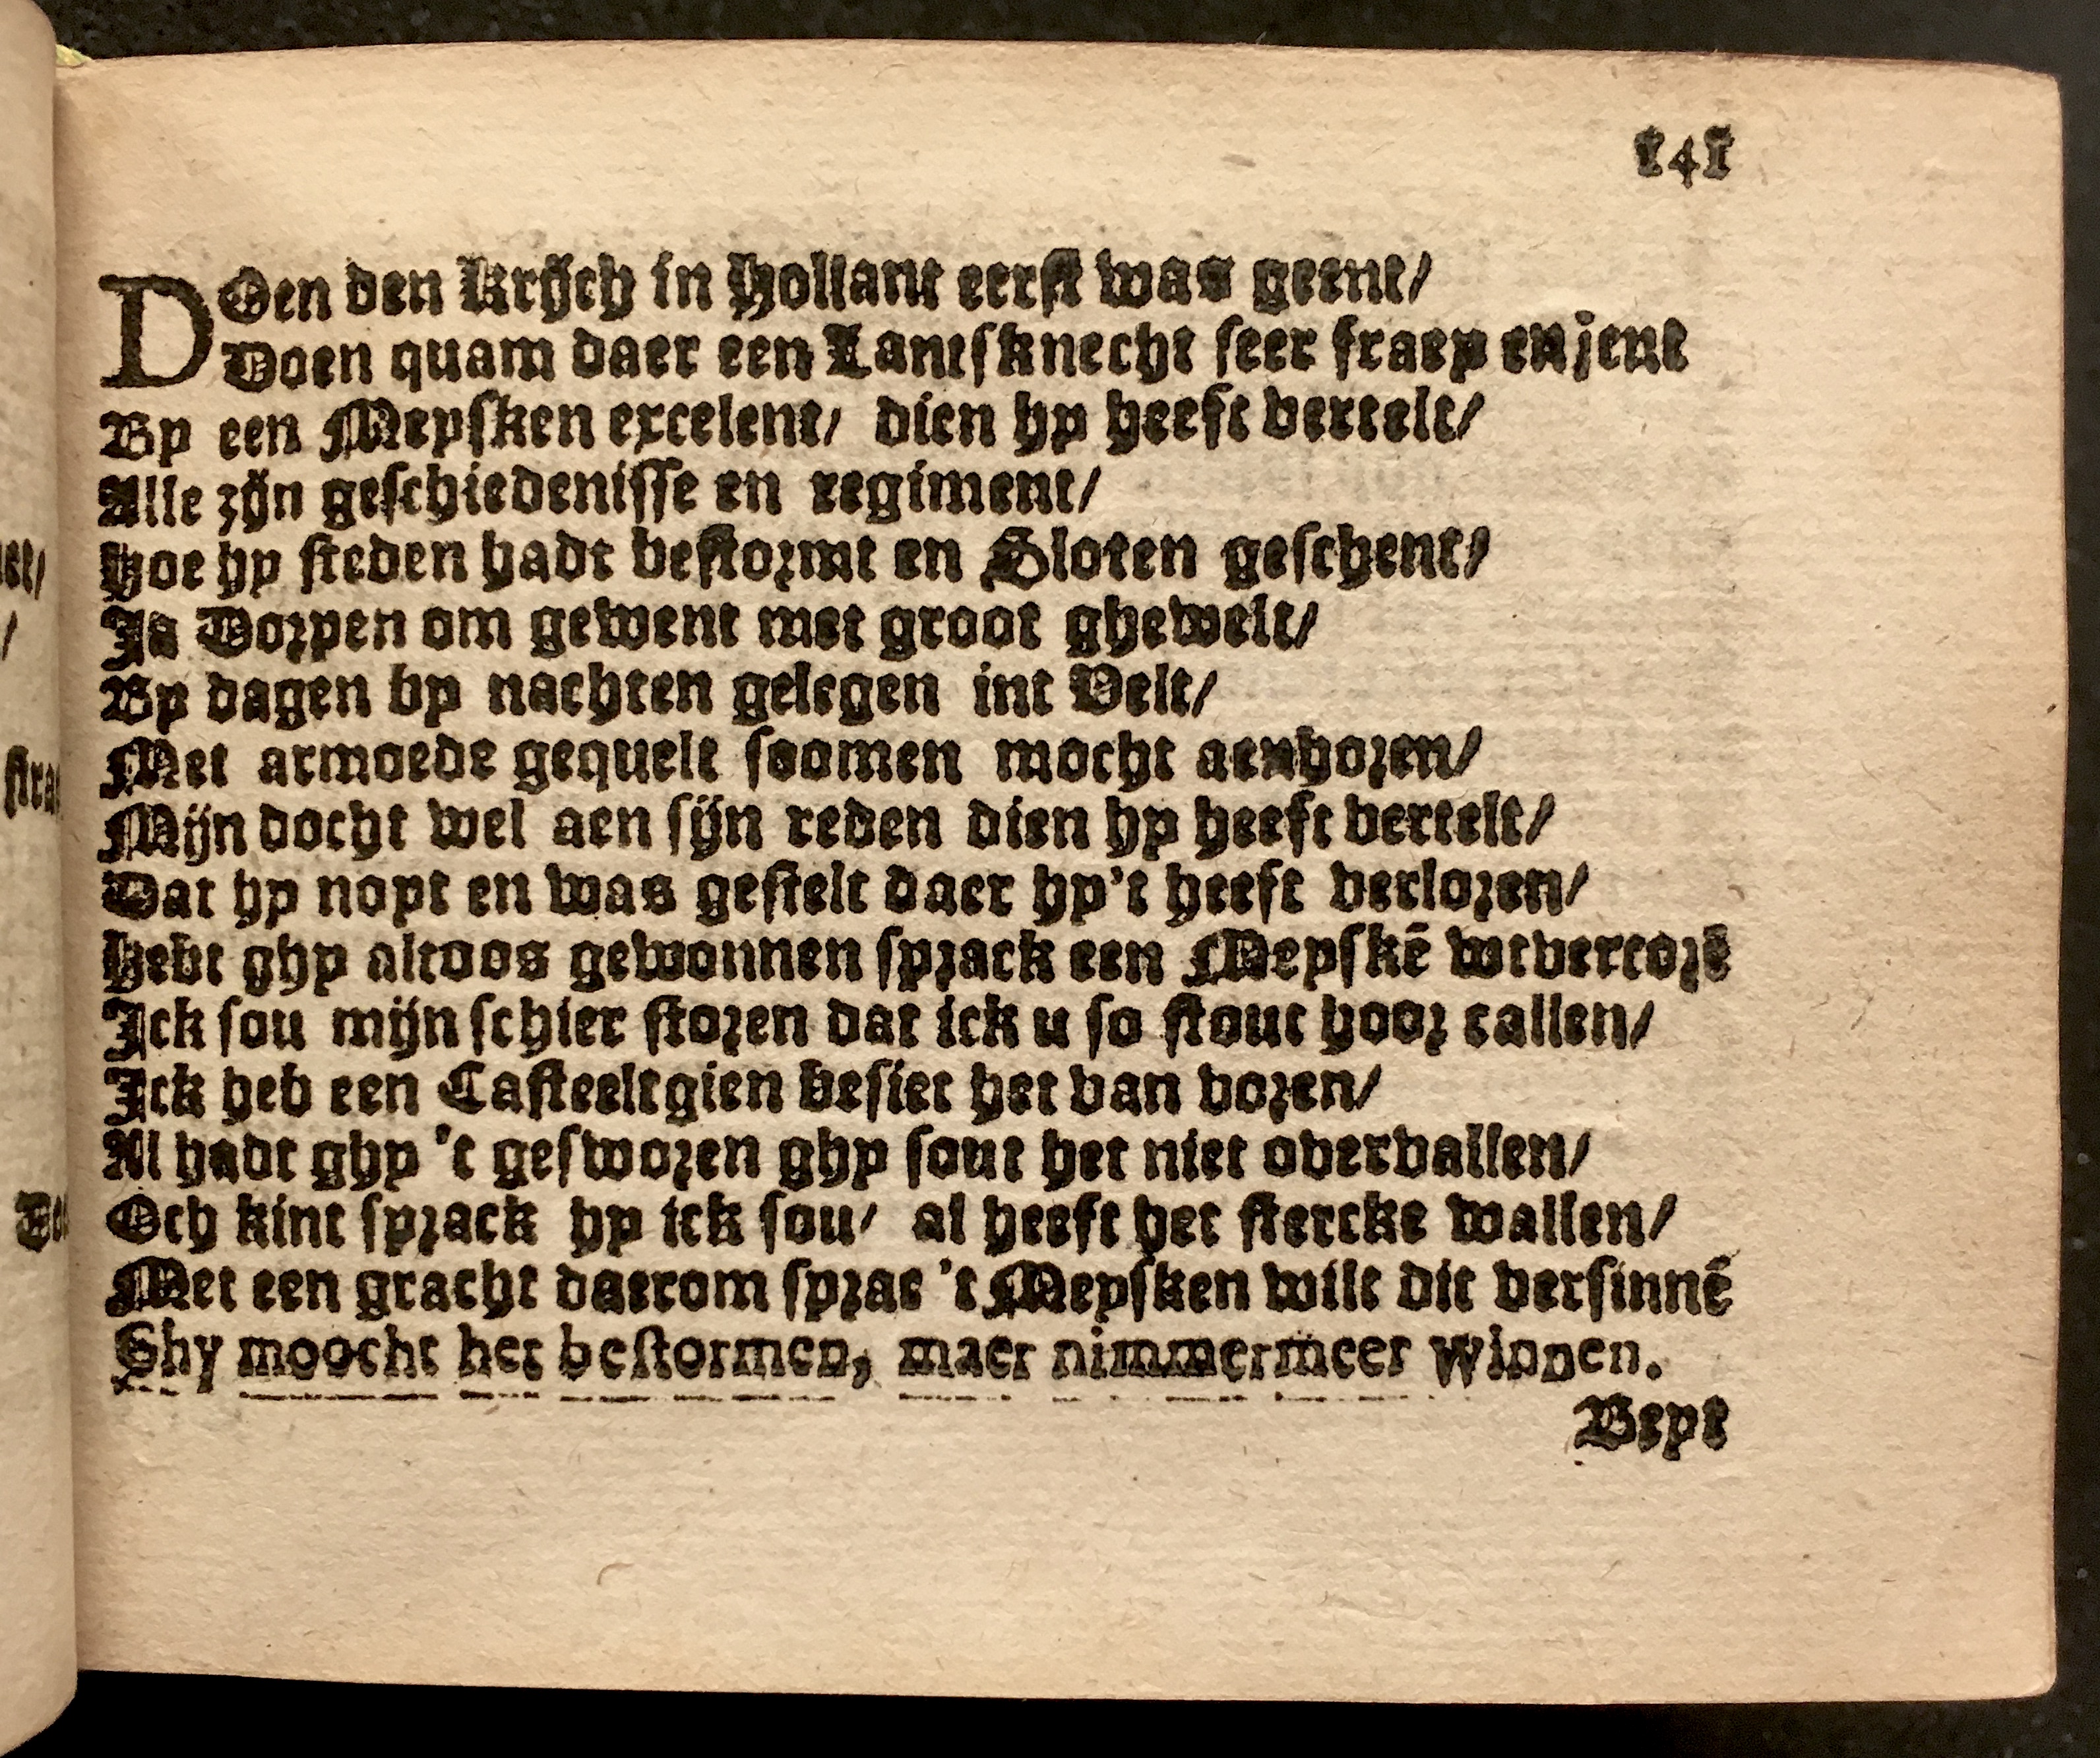 141
DOen den Krijch in Hollant eerst was geent/
Doen quam daer een Lantsknecht seer fraey en jent
By een Meysken excelent/ dien hy heeft vertelt/
Alle zijn geschiedenisse en regiment/
Hoe hy steden hadt bestormt en Sloten geschent/
Ja Dorpen om gewent met groot ghewelt/
By dagen by nachten gelegen int Velt/
Met armoede gequelt soomen mocht aenhoren/
Mijn docht wel aen sijn reden dien hy heeft vertelt/
Dat hy noyt en was gestelt daer hy't heeft verloren/
Hebt ghy altoos gewonnen sprack een Meyskē wtvercorē
Ick sou mijn schier storen dat ick u so stout hoor callen/
Ick heb een Casteeltgien besiet het van voren/
Al hadt ghy 't gesworen ghy sout het niet overvallen/
Och kint sprack hy ick sou/ al heeft het stercke wallen/
Met een gracht daerom sprac 't Meysken wilt dit versinnē
Ghy moocht het bestormen, maer nimmermeer winnen.
Beyt